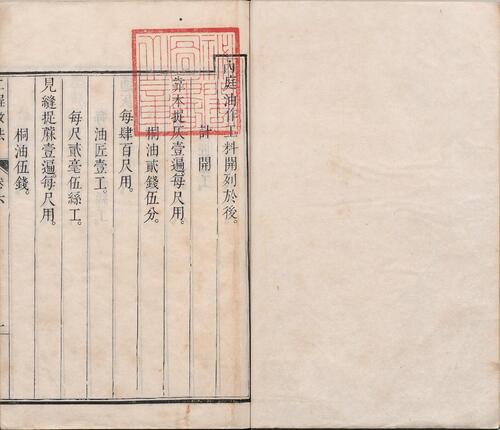 內庭油作工料開列於後。
計開
靠木捉灰壹遍每尺用。
桐油貳錢伍分。
每肆百尺用。
油匠壹工。
每尺貳毫伍絲工。
見縫捉蔴壹遍每尺用。
桐油伍錢。
工程做法 卷六 一